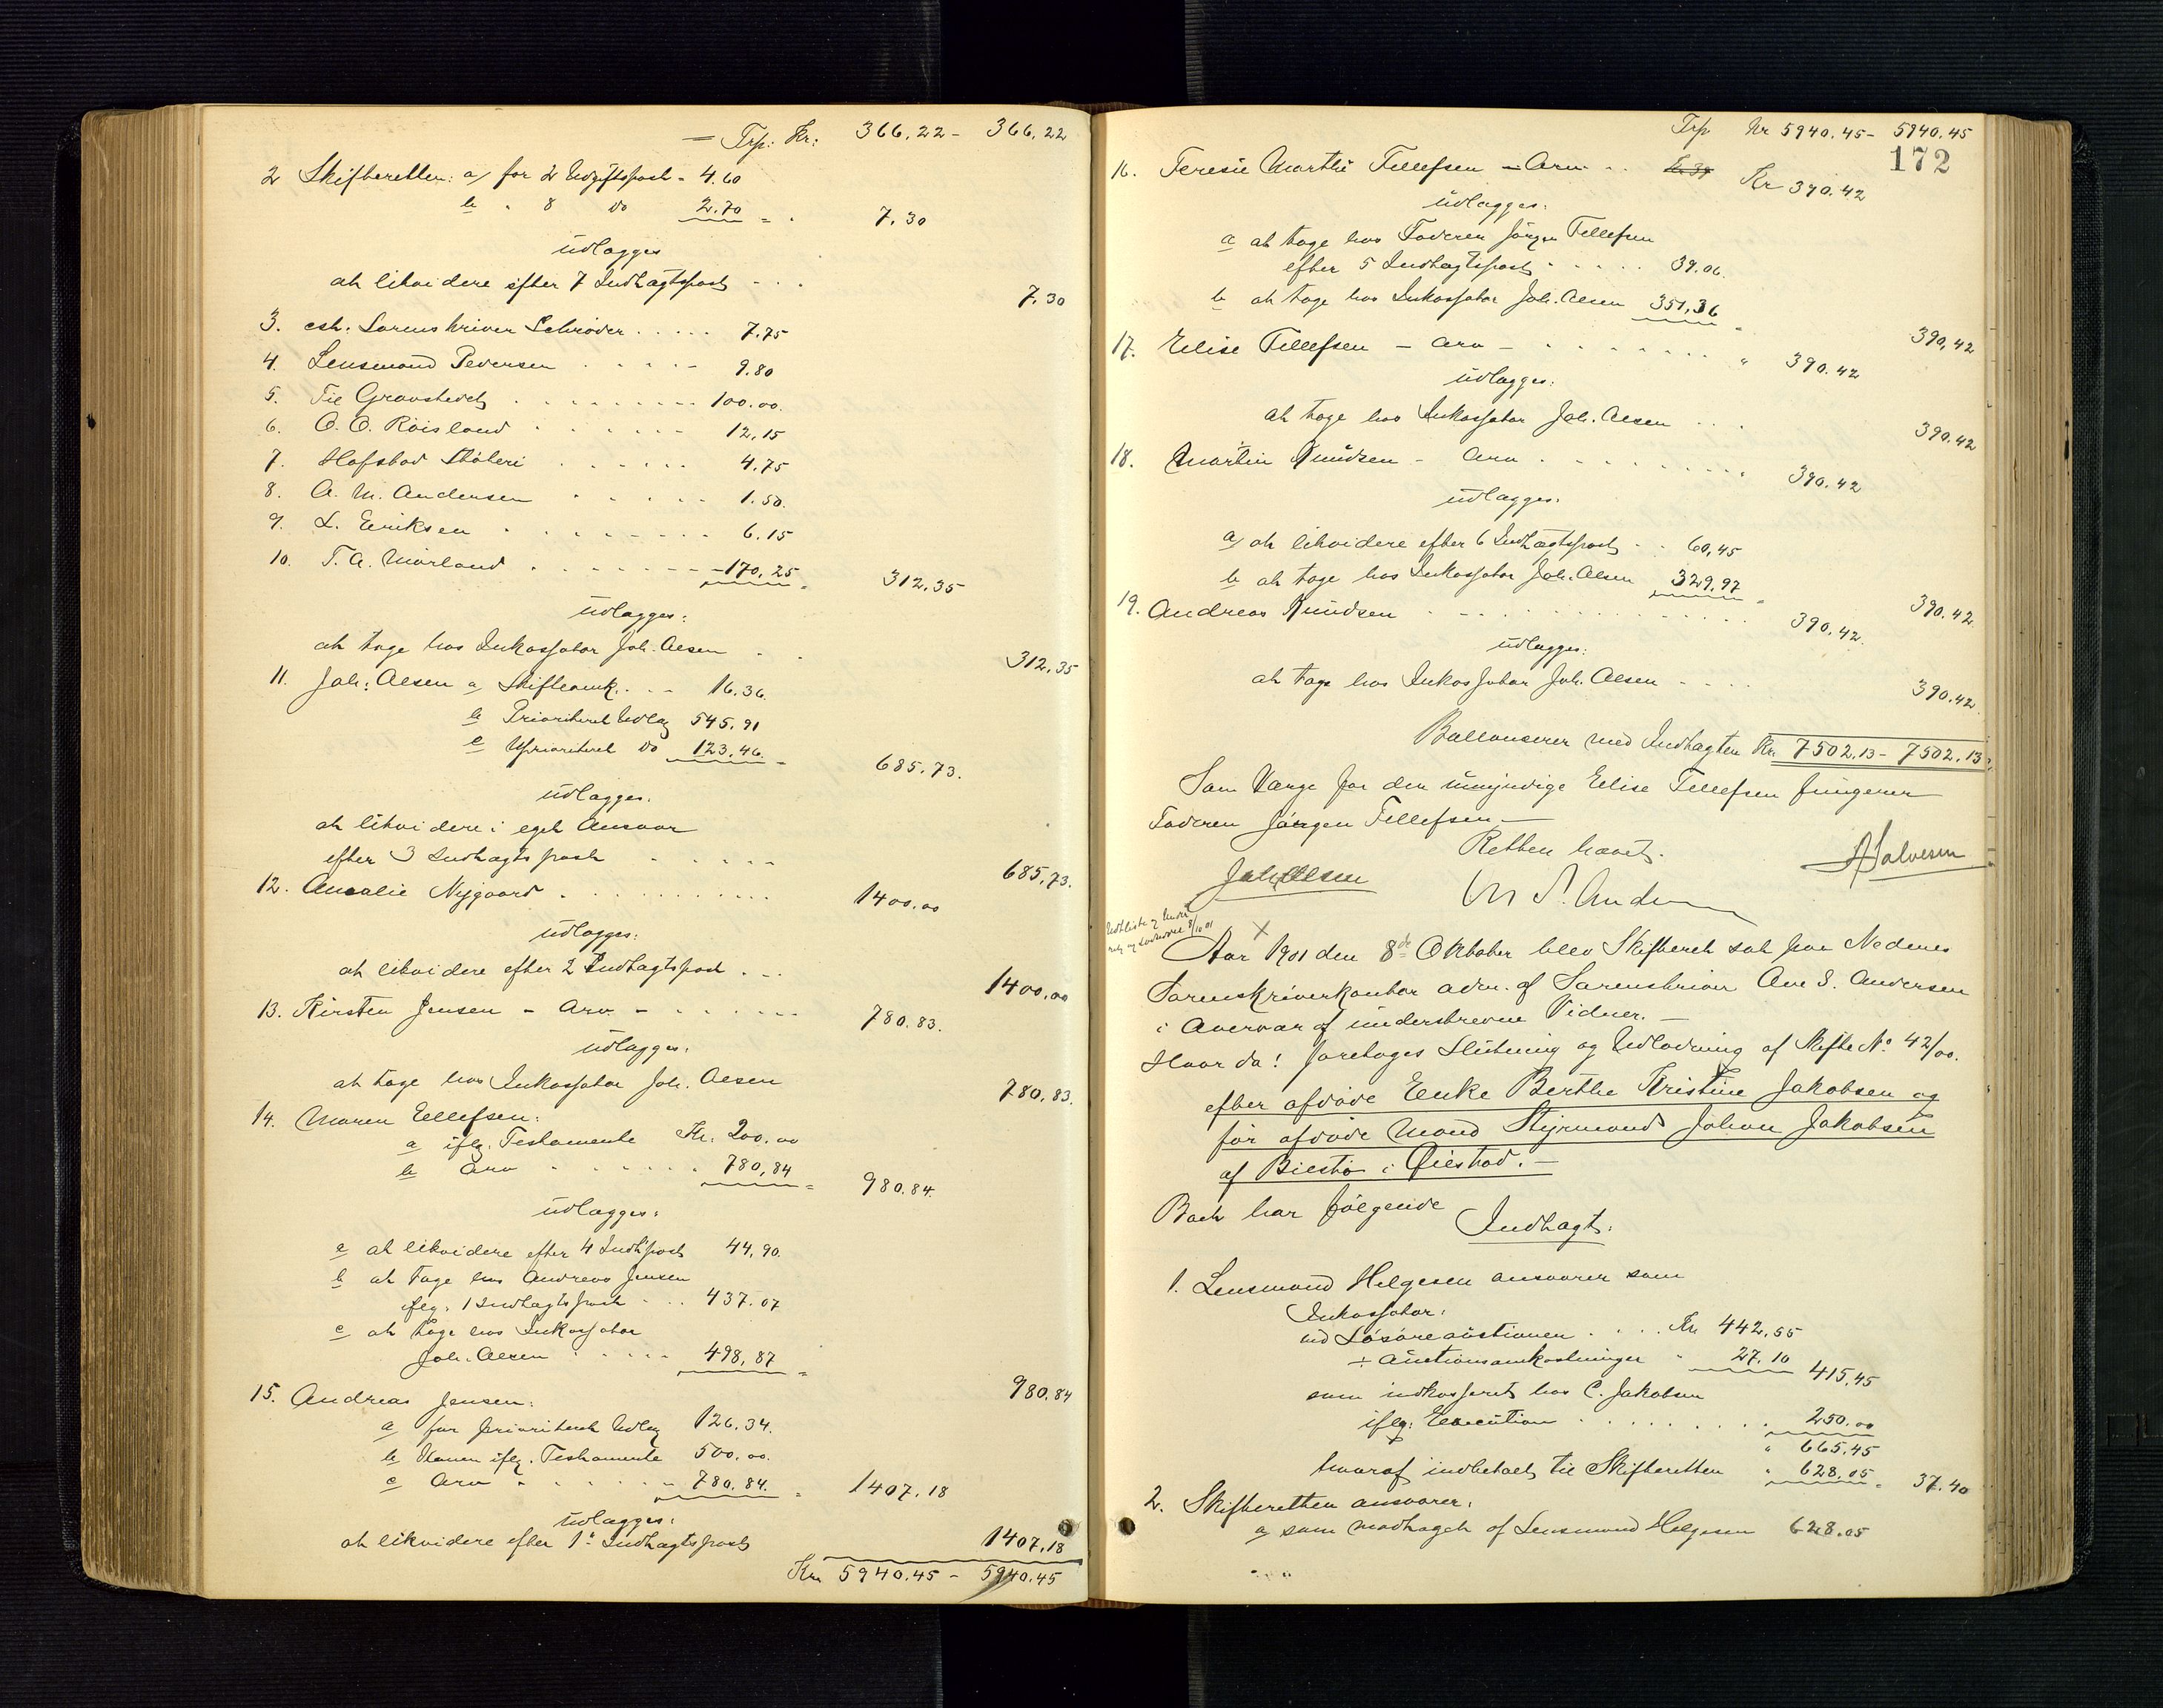 Trp. Kr: 366.22 - 366.22
2 Skifteretten: a/ for 2 Udgiftspost - 4.60
b " 8 do 2.70 = . 7.30
udlægges
at likvidere efter 7 Indtægtspost - - . 7.30
3. cst. Sorenskriver Schrøder . . . . . 7.75
4. Lensmand Pedersen . . . . - 9.80
5. Til Gravstedet . . . . . . . . 100.00.
6. O. O. Röisland . . . . . . 12.15
7. Hofstad 4.75
8. A. M. Andersen . . . . . 1.50.
9. L. Eriksen . . . . . . . 6.15
10. T. A. Mörland . . . . . . 170.25 = 312.35
udlægges:
at tage hos Inkassator Joh. Olsen . . 312.35
11. Joh: Olsen a/ Skifteomk. . . - 16.36.
b Prioriteret Udlæg 545.91
c Uprioriteret do 123.46. = 685.73.
udlægges.
at likvidere i eget Ansvar
efter 3 Indtægtspost . . . . . 685.73.
12. Amalie Nygaard . . . . . . . . . 1400.00
udlægges:
at likvidere efter 2 Indtægtspost . . . 1400.00
13. Kirsten Jensen - Arv. - . . . . . . 780.83.
udlægges:
at tage hos Inkassator Joh. Olsen 780.83.
14. Maren Ellefsen:
a iflg. Testamente Kr. 200.00
b Arv . . . . . . 780,84 = 980.84.
udlægges:
a at likvidere efter 4 Indt.post 44,90.
b at tage hos Andreas Jensen
iflg. 1 Indtægtspost . . . 437.07
c at tage hos Inkassator
Joh. Olsen . . . . . 498,87 =
980.84
15. Andreas Jensen:
a/ for prioriteret Udlæg 126.34.
b iflg. Testamente 500.00.
c Arv . . . . . . 780.84. = 1407.18
udlægges:
at likvidere efter 1ste Indtægtspost 1407.18
Kr. 5940.45 - 5940.45
Trp Kr 5940.45 - 5940.45
172
16. Teresie Marthe Tellefsen - Arv . . Kr 390.42
udlægges:
a at tage hos Faderen Jörgen Tellefsen
efter 5 Indtægtspost . . . . . 39.06.
b at tage hos Inkassator Joh. Olsen 351,36 =
390,42
17. Elise Tellefsen - Arv - . . . . . . . . " 390.42
udlægges:
at tage hos Inkassator Joh. Olsen . . . 390.42
18. Martin Knudsen - Arv . . . . . . . . . " 390.42
udlægges:
a/ at likvidere efter 6 Indtægtspost . . 60,45
b at tage hos Inkassator Joh. Olsen 329,97 =
390.42
19. Andreas Knudsen . . . . . . . . . . . 390.42.
udlægges:
at tage hos Inkassator Joh. Olsen - . . . 390.42.
Ballanserer med Indtægten Kr. 7502.13 - 7502.13.
Som Værge for den umyndige Elise Tellefsen fungerer
Faderen Jörgen Tellefsen. -
Retten hævet.
Joh Olsen
A Halvorsen
Aar 1901 den 8de Oktober blev Skifteret sat paa Nedenes
Sorenskriverkontor adm. af Sorenskriver Ave S. Andersen
i Overvær af underskrevne Vidner. -
Hvor da: foretoges Slutning og Udlodning af Skifte No 42/00.
efter afdøde Enke Berthe Kristine Jakobsen og
før afdøde Mand Styrmand Johan Jakobsen
af Bilstö i Öiestad. -
Boet har følgende
Indtægt:
1. Lensmand Helgesen ansvarer som
Inkassator:
ved Lösöreauktionen . . . . Kr 442,55
÷ Auctionsomkostninger " 27.10
415,45
som indkasseret hos C. Jakobsen
iflg: Execution . . . . . . . . 250.00
" 665.45
hvoraf indbetalt til Skifteretten " 628.05 = 37.40
2. Skifteretten ansvarer:
a/ som modtaget af Lensmand Helgesen 628.05